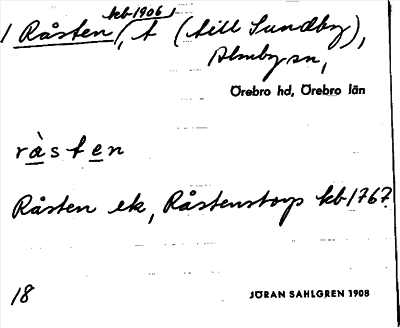 kb 1906
1 Råsten, t (till Sundby),
Almby sn,
Örebro hd, Örebro län
råsten
Råsten ek, Råstenstorp kb 1767.
18
JÖRAN SAHLGREN 1908